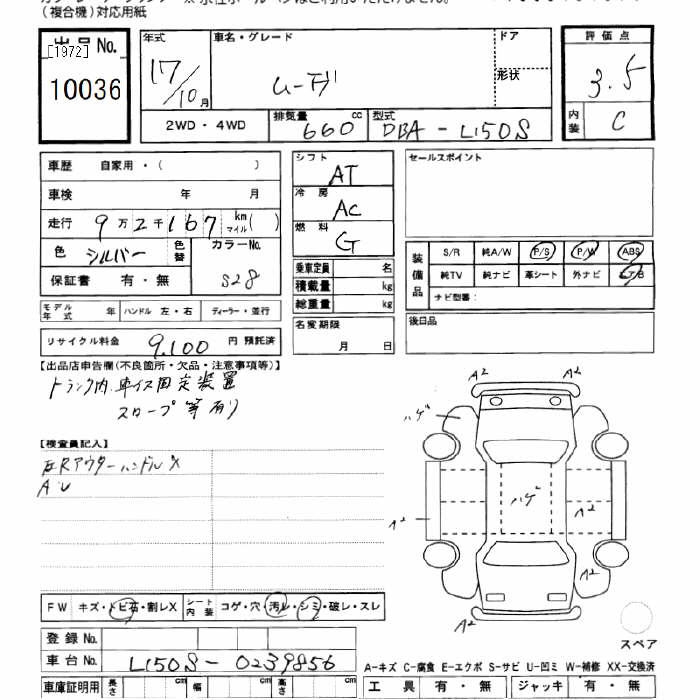 （複合機）対応用紙
出品No.
[1972]
10036
年式
17/10月
車名・グレード
ムーヴ
ドア
形状
2WD・4WD
排気量
660 cc
型式
DBA-L150S
評価点
3.5
内装
C
車歴 自家用・（ ）
車検 年 月
走行 9万2千167 km マイル（ ）
色 シルバー 色替
カラーNo.
S28
保証書 有・無
モデル年式 年 ハンドル 左・右 ディーラー・並行
リサイクル料金 9,100 円 預託済
シフト
AT
冷房
AC
燃料
G
乗車定員 名
積載量 kg
総重量 kg
名変期限
月 日
セールスポイント
装備品
S/R 純A/W P/S P/W ABS
純TV 純ナビ 革シート 外ナビ エアB
ナビ型番：
後日品
【出品店申告欄(不良箇所・欠品・注意事項等)】
トランク内 車イス固定装置
スロープ等有り
【検査員記入】
左Rアウターハンドル X
A U
A2 A2
ハゲ
ハゲ
A2
A2
A2
A2
FW キズ・トビ石・割レX
シート内装 コゲ・穴・汚レ・シミ・破レ・スレ
登録No.
車台No. L150S-0239856
車庫証明用 長さ cm 幅 cm 高さ cm
スペア
A-キズ C-腐食 E-エクボ S-サビ U-凹ミ W-補修 XX-交換済
工具 有・無 ジャッキ 有・無